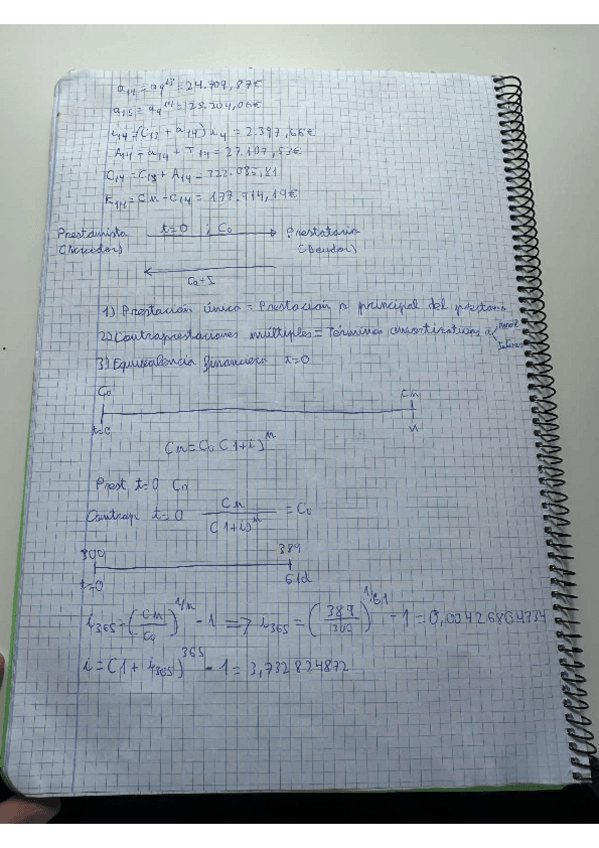 a₁₄ = a₄¹⁷ = 24.709,87€
a₁₅ = a₄¹⁷ = 25.204,06€
= (C₁₃ + a₁₄) i₄ = 2.397,66€
A₁₄ = a₁₄ + I₁₄ = 27.107,53€
C₁₄ = C₁₃ + A₁₄ = 722.085,81
= Cn - C₁₄ = 177.914,19€
Prestamista t=0 ; C₀ Prestatario
(Acreedor) (Deudor)
1) Prestación única = Prestación o principal del préstamo
2) Contraprestaciones múltiples = Términos amortizativos a
3) Equivalencia financiera t=0
C₀ Cn
t=0 n
Cn = C₀ (1+i)ⁿ
Prest. t=0 Cn
Contrap t=0 Cn / (1+i)ⁿ = C₀
300 389
t=0 61d
i₃₆₅ = (Cn / C₀)^1/n - 1 => i₃₆₅ = (389 / 300)^1/61 - 1 = 0,00426804334
i = (1 + i₃₆₅)^365 - 1 = 3,732824872